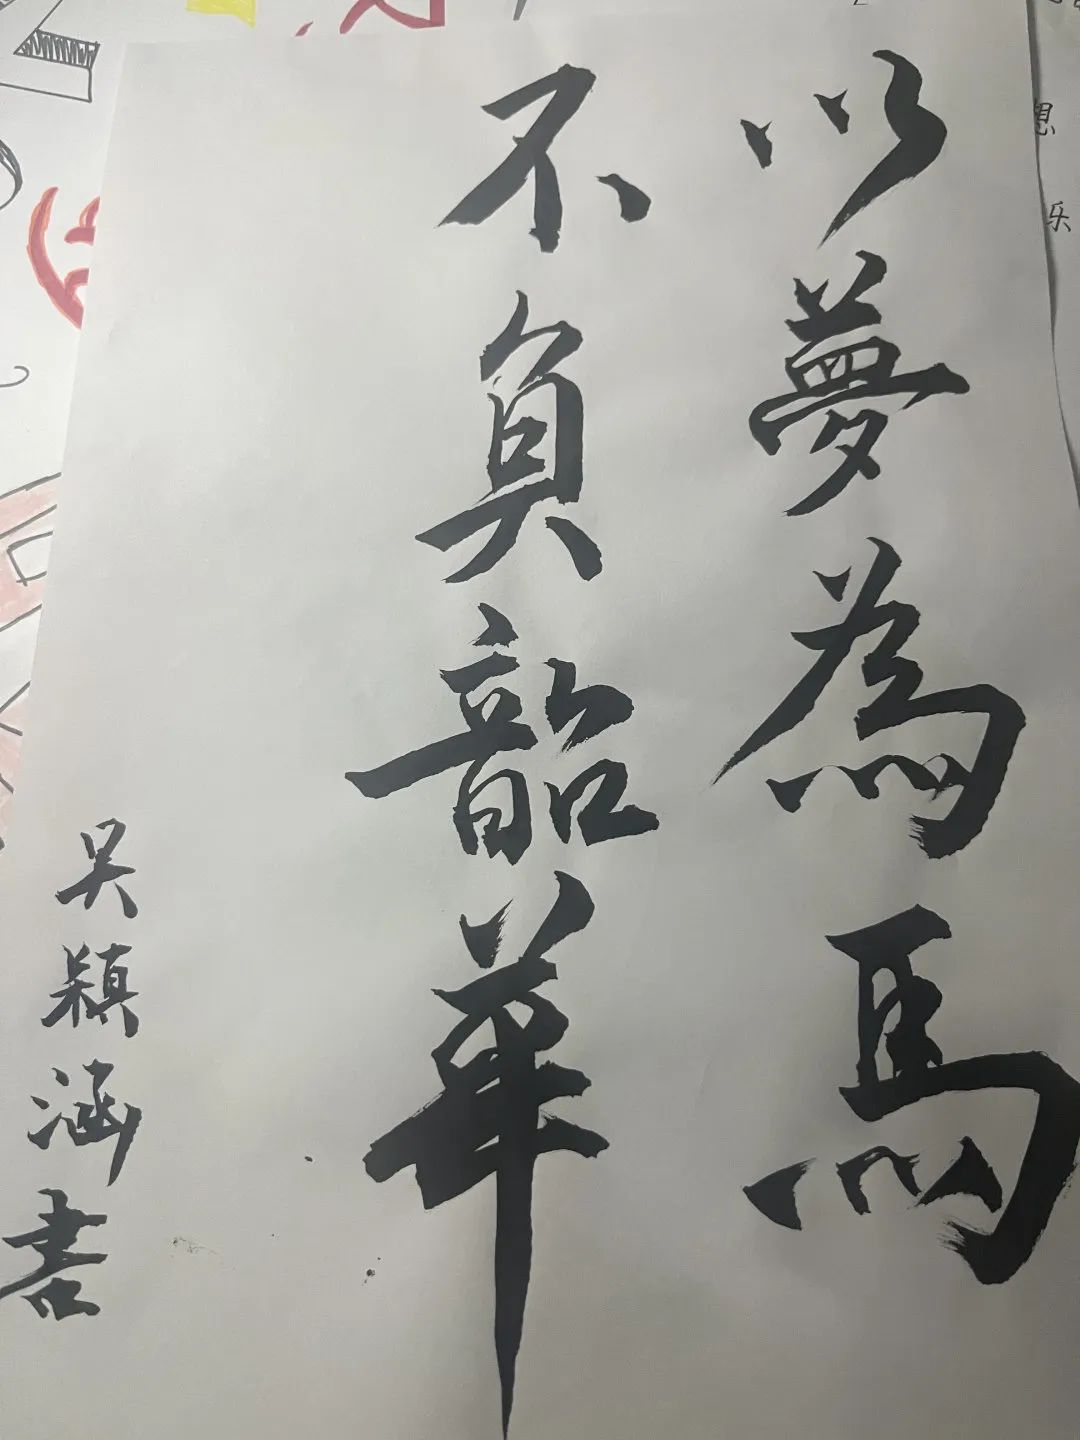 以夢為馬
不負韶華
吴穎涵書
思
乐